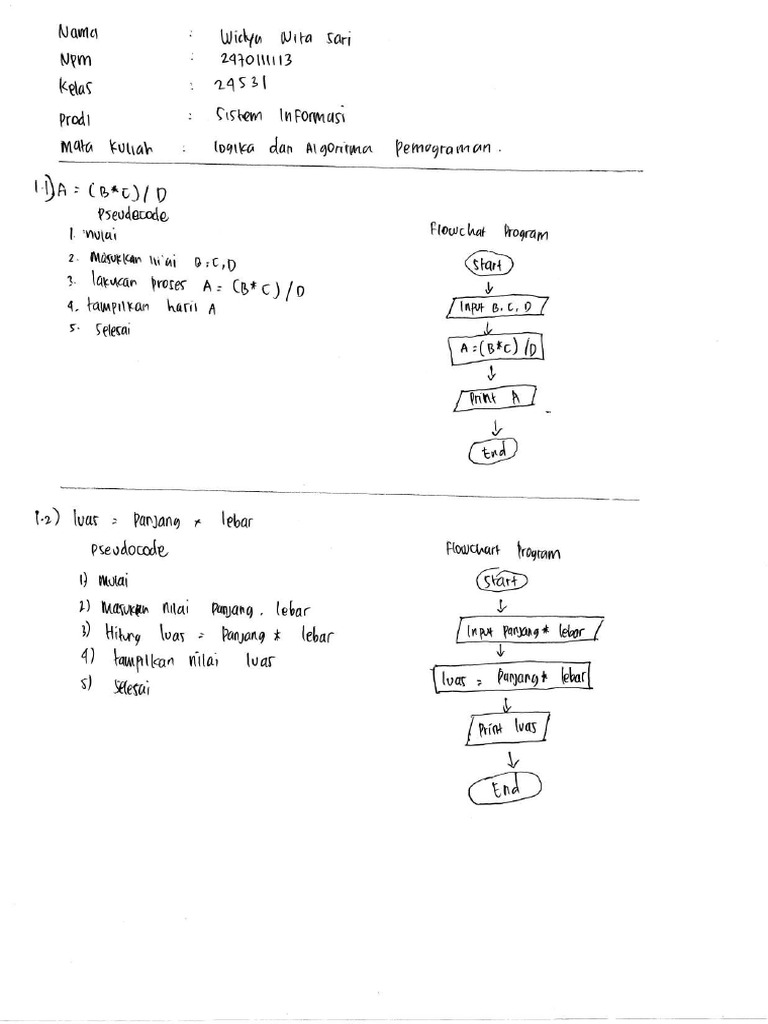 Nama : Widya Nita Sari
Npm : 2470111113
Kelas : 24531
Prodi : Sistem Informasi
Mata Kuliah : Logika dan Algoritma Pemograman.
1.1) A = (B*C) / D
Pseudocode
1. mulai
2. Masukkan nilai B, C, D
3. lakucan proses A = (B*C) / D
4. tampilkan hasil A
5. Selesai
Flowchat Program
Start
Input B, C, D
A = (B*C) / D
Print A
End
1.2) luas = Panjang * lebar
Pseudocode
1) Mulai
2) Masukkan nilai Panjang, lebar
3) Hitung luas = Panjang * lebar
4) tampilkan nilai luas
5) Selesai
Flowchart Program
Start
Input Panjang * lebar
luas = Panjang * lebar
Print luas
End